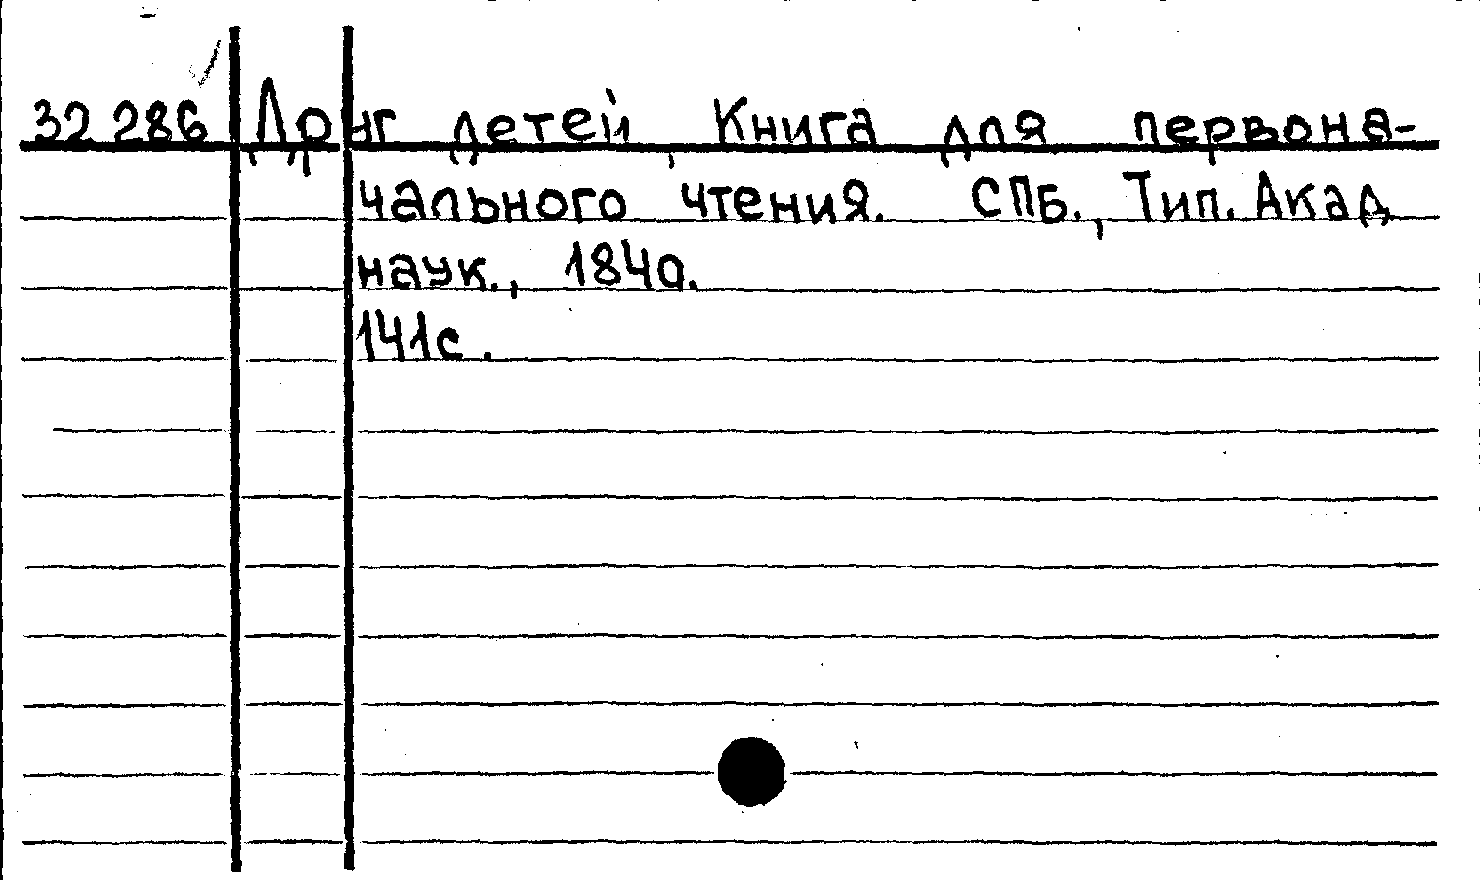 32 286 Друг детей, Книга для первона-
чального чтения. СПБ., Тип. Акад
наук., 1840.
141с.